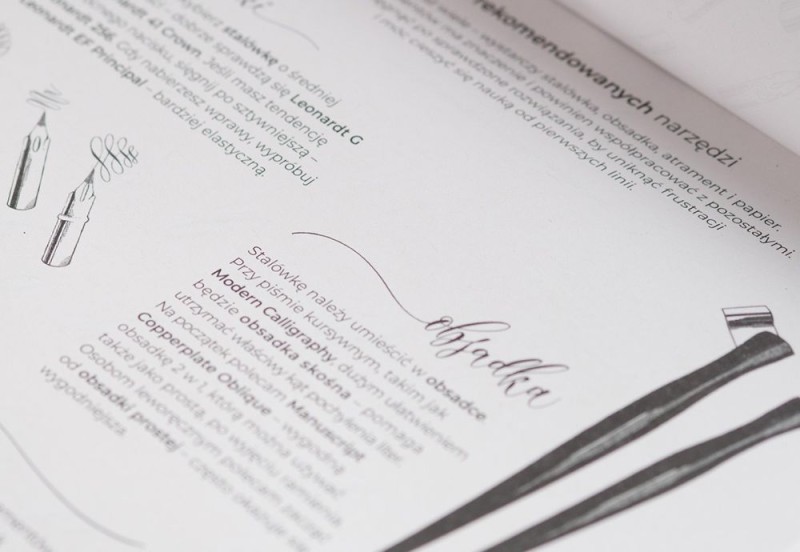 rekomendowanych narzędzi
wystarczy stalówka, obsadka, atrament i papier.
ma znaczenie i powinien współpracować z pozostałymi.
po sprawdzone rozwiązania, by uniknąć frustracji
i móc cieszyć się nauką od pierwszych linii.
stalówkę o średniej
dobrze sprawdzą się Leonardt G
41 Crown. Jeśli masz tendencję
nacisku, sięgnij po sztywniejszą –
Leonardt 256. Gdy nabierzesz wprawy, wypróbuj
Leonardt EF Principal – bardziej elastyczną.
obsadka
Stalówkę należy umieścić w obsadce.
Przy piśmie kursywnym, takim jak
Modern Calligraphy, dużym ułatwieniem
będzie obsadka skośna – pomaga
utrzymać właściwy kąt pochylenia liter.
Na początek polecam Manuscript
Copperplate Oblique – wygodną
obsadkę 2 w 1, którą można używać
także jako prostą, po wyjęciu ramienia.
Osobom leworęcznym polecam zacząć
od obsadki prostej – często okazuje się
wygodniejsza.